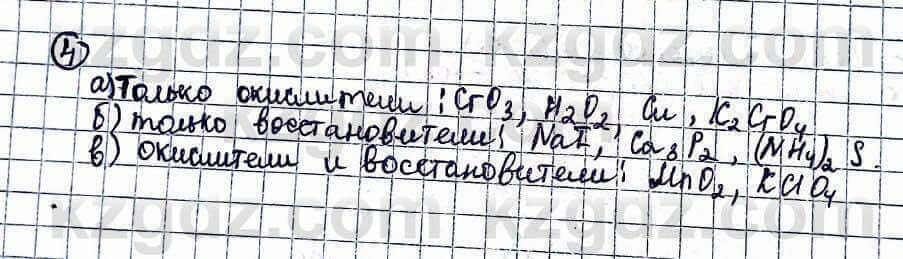 4
а) только окислители: CrO₃, H₂O₂, Cu, K₂CrO₄
б) только восстановители: NaI, Ca₃P₂, (NH₄)₂S.
в) окислители и восстановители: MnO₂, KClO₄
kzgdz.com kzgdz.com
kzgdz.com kzgdz.com
kzgdz.com kzgdz.com